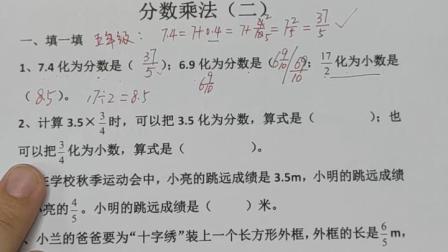 分数乘法（二）
一、填一填 五年级： 7.4=7+0.4=7+4/10=7 2/5=37/5 ✓
1、7.4 化为分数是（ 37/5 ）；6.9 化为分数是（ 6 9/10 / 69/10 ）；17/2 化为小数是
（ 8.5 ）。 17÷2=8.5 6 9/10
2、计算 3.5×3/4 时，可以把 3.5 化为分数，算式是（ ）；也
可以把 3/4 化为小数，算式是（ ）。
学校秋季运动会中，小亮的跳远成绩是 3.5m，小明的跳远成绩
小亮的 4/5。小明的跳远成绩是（ ）米。
、小兰的爸爸要为“十字绣”装上一个长方形外框，外框的长是 6/5 m，